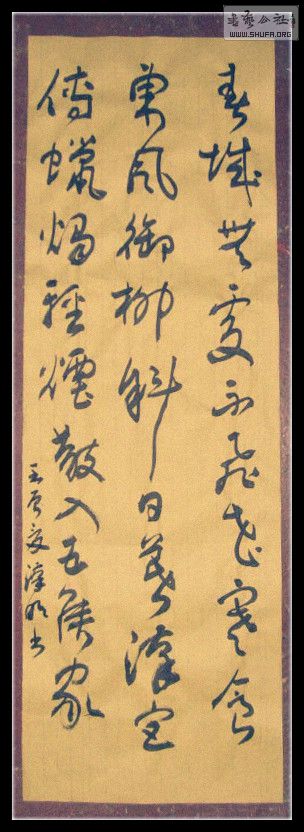 書藝公社
WWW.SHUFA.ORG
春城無處不飛花寒食
東風御柳斜日暮漢宮
傳蠟燭輕煙散入五侯家